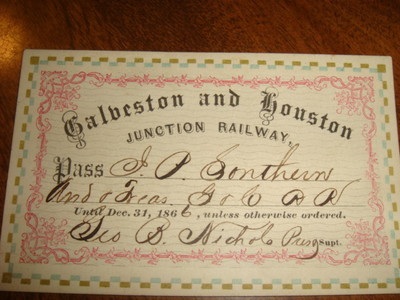 Galveston and Houston
JUNCTION RAILWAY,
Pass J. P. Southern
And & Treas. G & C R R
Until Dec. 31, 1866, unless otherwise ordered.
Geo B. Nichols Pres Supt.